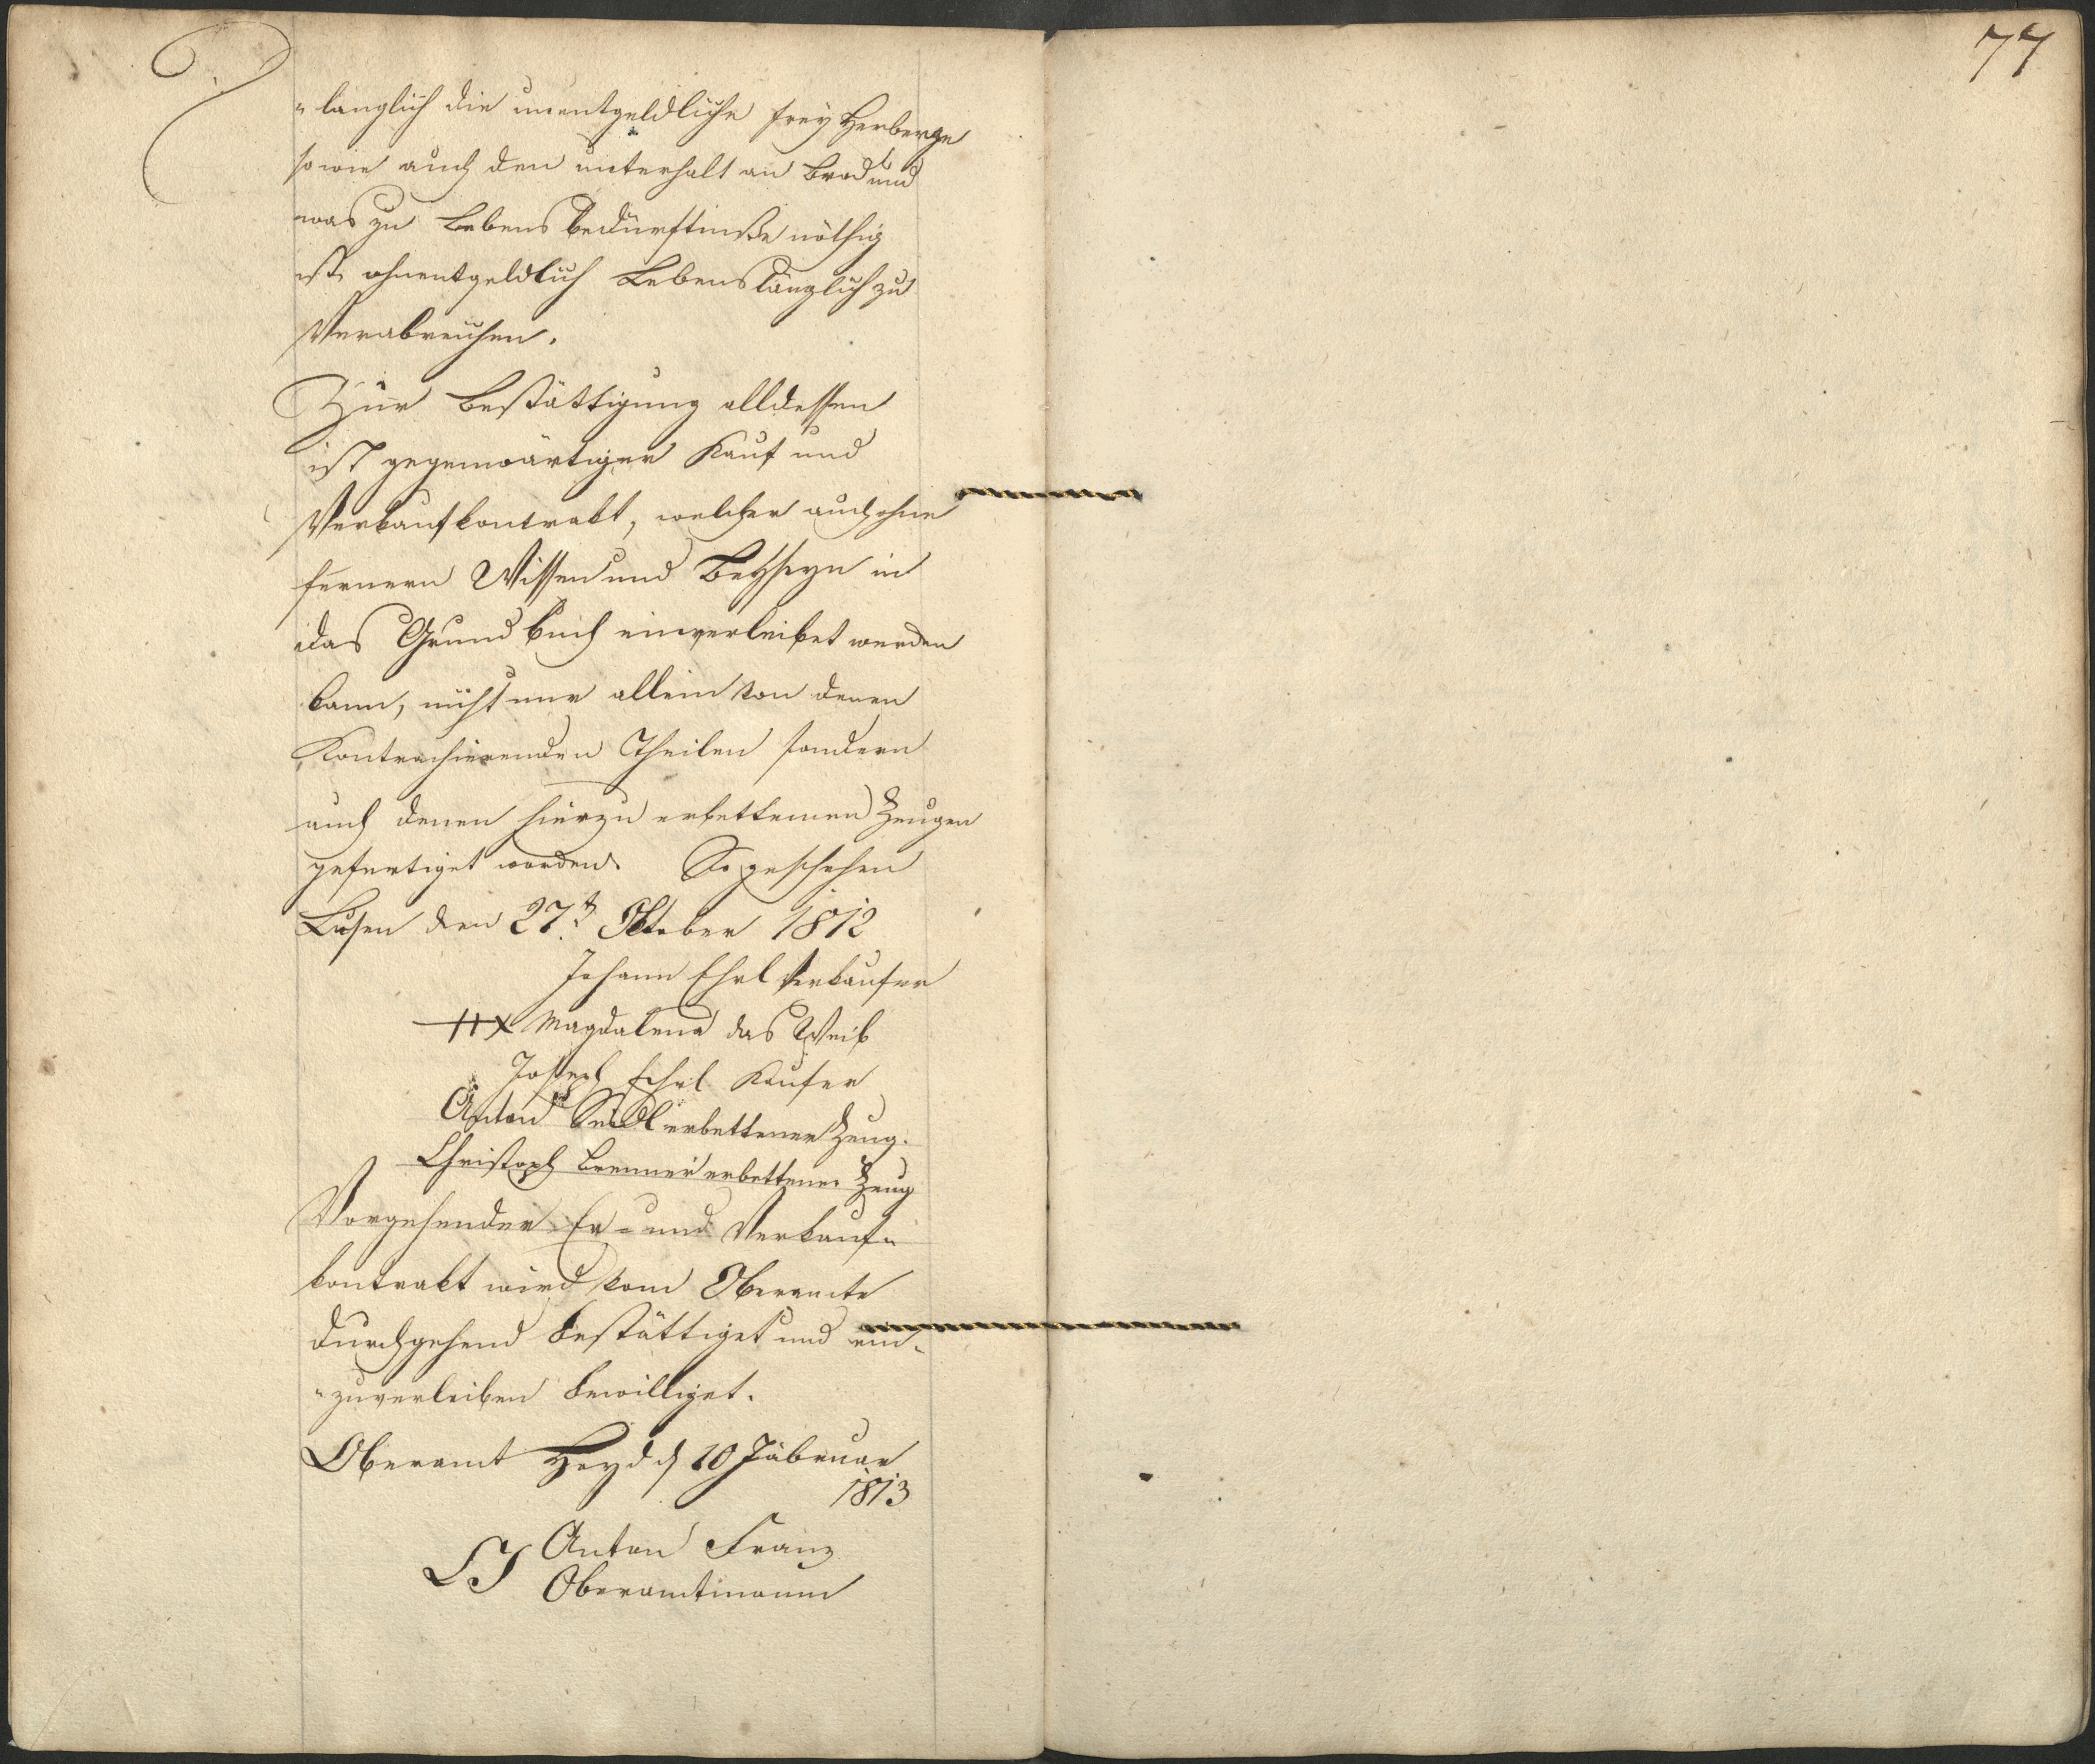 77
„langlich die unentgeldliche frey Herberge
so wie auch den unterhalt an Brod und
was zu Lebens bedürftniße nöthig
ist, ohnentgeldlich Lebenslänglich zu
Verabreichen.
Zur Bestättigung alldessen
ist gegenwärtiger Kauf und
Verkaufkontrakt, welcher auch ohne
fernern Wissen und Beyseyn in
das Grundbuch einverleibet werden
kann, nicht nur allein von denen
Kontrachierenden Theilen sondern
auch denen hierzu erbettenen Zeugen
gefertiget worden. So geschehen
Lusen den 27t. Oktober 1812
Johann Ehrl Verkaufer
+++ Magdalena das Weib
Joseph Ehrl Kaufer
Anton Seidl erbettener Zeug.
Christoph Brenner erbettener Zeug
Vorgehender Er- und Verkauf„
kontrakt wird vom Oberamte
durchgehend bestättiget und ein„
„zuverleiben bewilliget.
Oberamt Heyd d 10 Februar
1813
LS Anton Franz
Oberamtmann